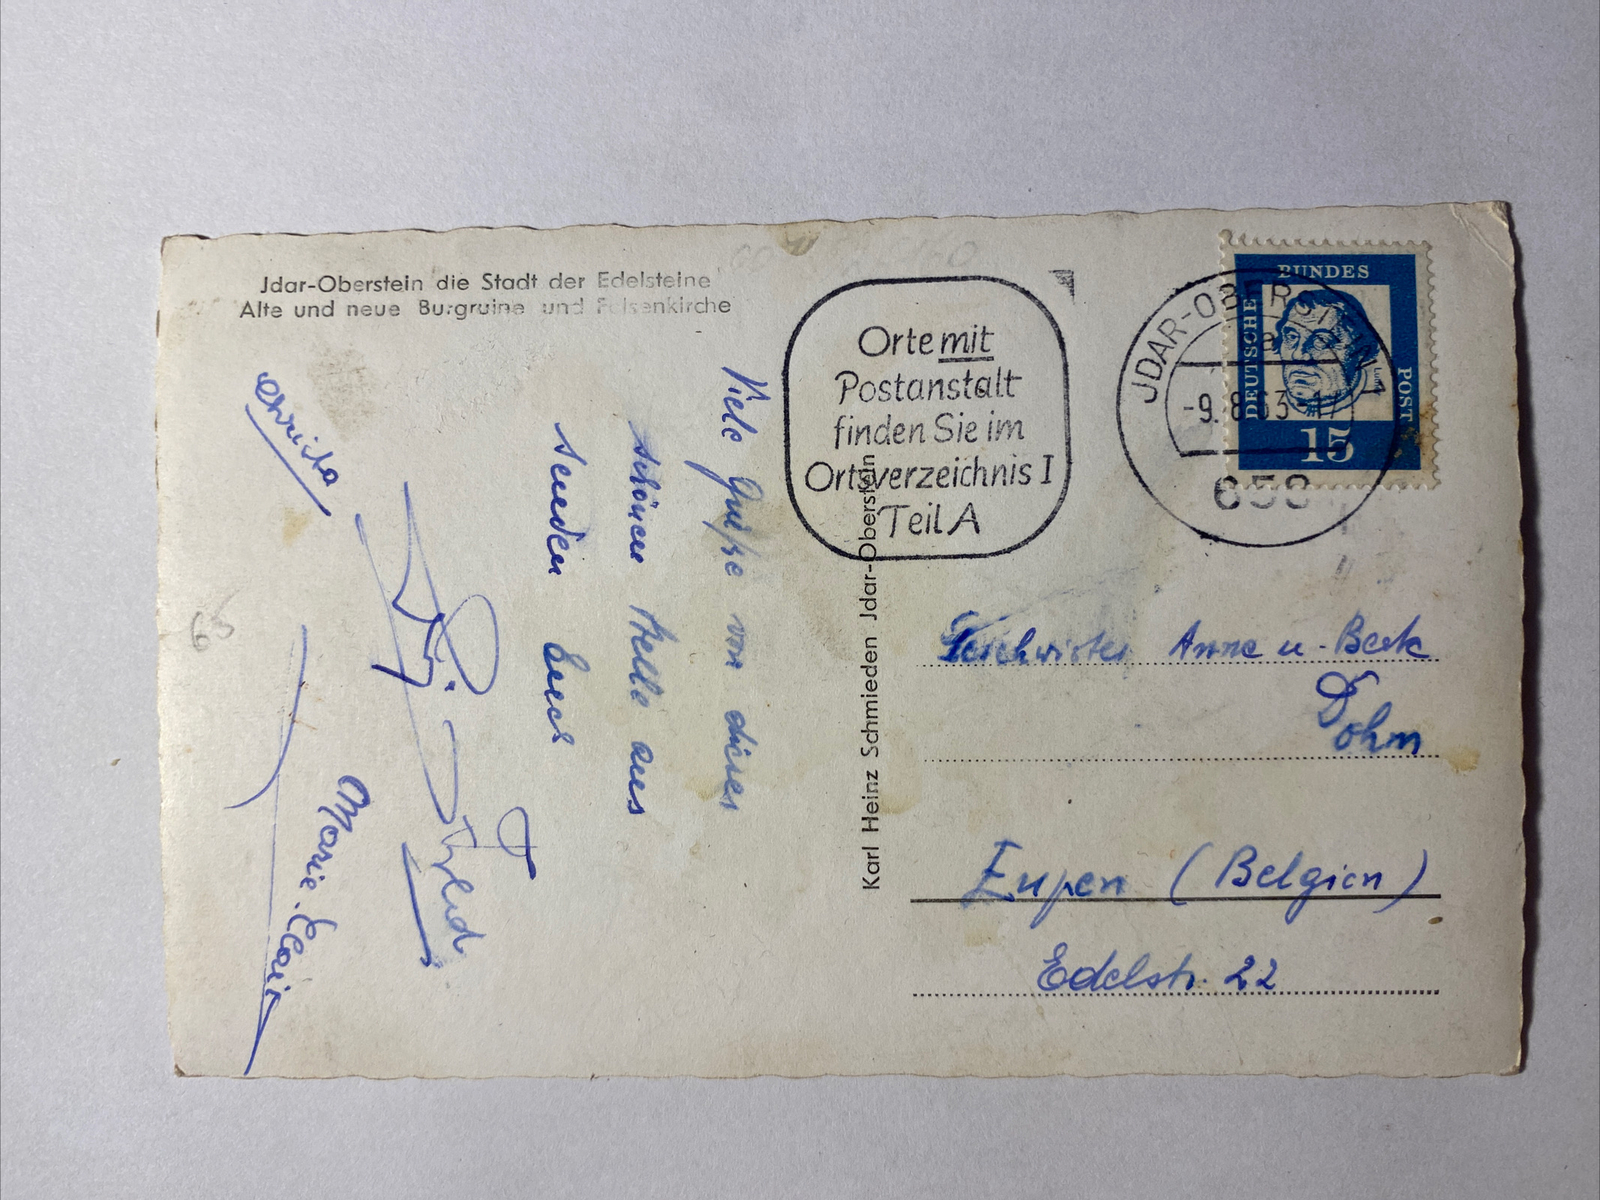 Jdar-Oberstein die Stadt der Edelsteine
Alte und neue Burgruine und Felsenkirche
Viele Grüße von dieser
schönen Stelle aus
senden Euch
Marie-Claire
Karl Heinz Schmieden Jdar-Oberstein
Orte mit
Postanstalt
finden Sie im
Ortsverzeichnis I
Teil A
JDAR-OBERSTEIN 1
a
-9.8.63-17
658
DEUTSCHE
BUNDES
POST
Luther
15
Geschwister Anne u. Beate
Dohm
Eupen (Belgien)
Edelstr. 22
65